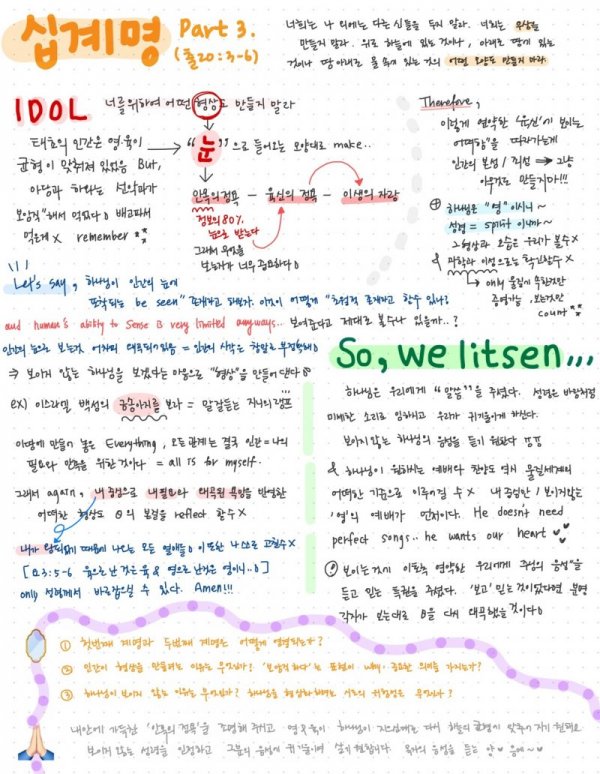 십계명 Part 3.
(출20:3-6)
너희는 나 외에는 다른 신들을 두지 말라. 너희는 우상을
만들지 말라. 위로 하늘에 있는 것이나, 아래로 땅에 있는
것이나 땅 아래로 물 속에 있는 것의 어떤 모양도 만들지 마라
IDOL 너를 위하여 어떤 형상도 만들지 말라
태초의 인간은 영·육이
균형이 맞춰져 있었음 But,
아담과 하와는 선악과가
remember
"눈"으로 들어오는 모양대로 make..
안목의 정욕 - 육신의 정욕 - 이생의 자랑
정보의 80%
눈으로 받는다
그래서 무엇을
보는지가 너무 중요하다
Therefore,
이렇게 연약한 '육신'에 보이는
어떠함을 따라가는게
인간의 본성/죄성 → 그니
아무것도 만들지마!!!
하나님은 "영"이시니~
성경 = spirit 이니까~
& 과학과 이성으로는 확신할수 X
count
Let's say, 하나님이 인간의 눈에
포착되는 be seen" 존재라고 하면
and human's ability to sense is very limited anyways.. 보여준다고 제대로 볼수나 있을까..?
⇒ 보이지 않는 하나님을 보겠다는 마음으로 "형상"을 만들어 낸다
ex) 이스라엘 백성의 금송아지를 보라 = 말 잘듣는 지니의 램프
이 땅에 만들어 놓은 Everything, 모든 관계는 결국 인간=나의
필요와 만족을 위한 것이다 = all is for myself.
그래서 again, 내 중심으로 내 필요와 왜곡된 욕망을 반영한
어떠한 형상도 의 본질을 reflect 할수 X
[요 3:5-6 육으로 난 것은 육 & 영으로 난 것은 영이니..]
only 성령께서 바로잡으실 수 있다. Amen!!!
So, we litsen...
하나님은 우리에게 "말씀"을 주셨다. 성경은 바람처럼
미세한 소리로 임하시고 우리가 귀 기울이게 하신다.
보이지 않는 하나님의 음성을 듣기 원한다 ㅠㅠ
& 하나님이 원하시는 예배와 찬양도 역시 물질세계의
어떠한 기준으로 이루어질 수 X 내 중심만! 보이지 않는
'영'의 예배가 먼저이다. He doesn't need
perfect songs.. he wants our heart
보이는 것에 이토록 연약한 우리에게 주님의 음성"을
듣고 믿는 특권을 주셨다. '보고' 믿는 것이었다면 분명
각자가 보는대로 를 다시 왜곡했을 것이다
① 첫번째 계명과 두번째 계명은 어떻게 연결되는가?
② 인간이 형상을 만들려는 이유는 무엇인가? '보암직하다'는 표현이 why 중요한 의미를 가지는가?
③ 하나님이 보이지 않는 이유는 무엇인가? 하나님을 형상화하려는 시도의 위험성은 무엇인가?
내 안에 가득한 '안목의 정욕'을 조명해 주시고 영&육이 하나님이 지으실때
보이지 않는 성령을 인정하고 그분의 음성에 귀 기울이며 살기 원합니다. 목자의 음성을 듣는 양